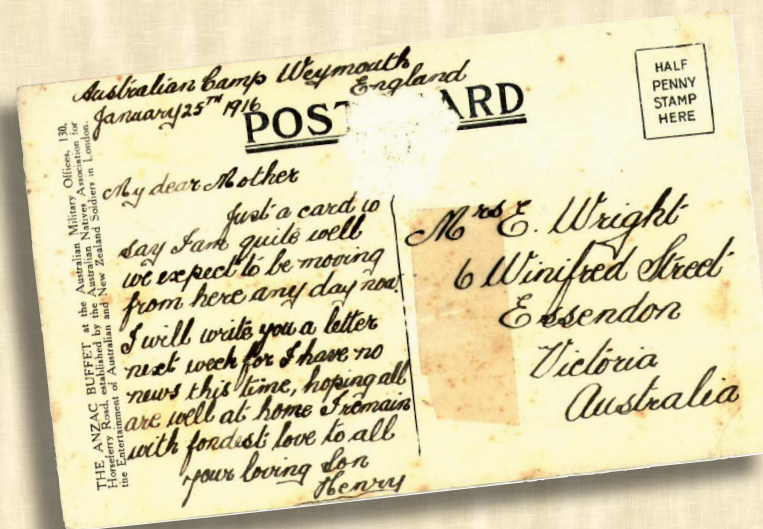 Australian Camp Weymouth
England
January 25TH 1916
POST CARD
HALF
PENNY
STAMP
HERE
THE ANZAC BUFFET at the Australian Military Offices, 130,
Horseferry Road, established by the Australian Natives Association for
the Entertainment of Australian and New Zealand Soldiers in London.
My dear Mother
Just a card to
say I am quite well
we expect to be moving
from here any day now.
I will write you a letter
next week for I have no
news this time, hoping all
are well at home I remain
with fondest love to all
your loving Son
Henry
Mrs E. Wright
6 Winifred Street
Essendon
Victoria
Australia